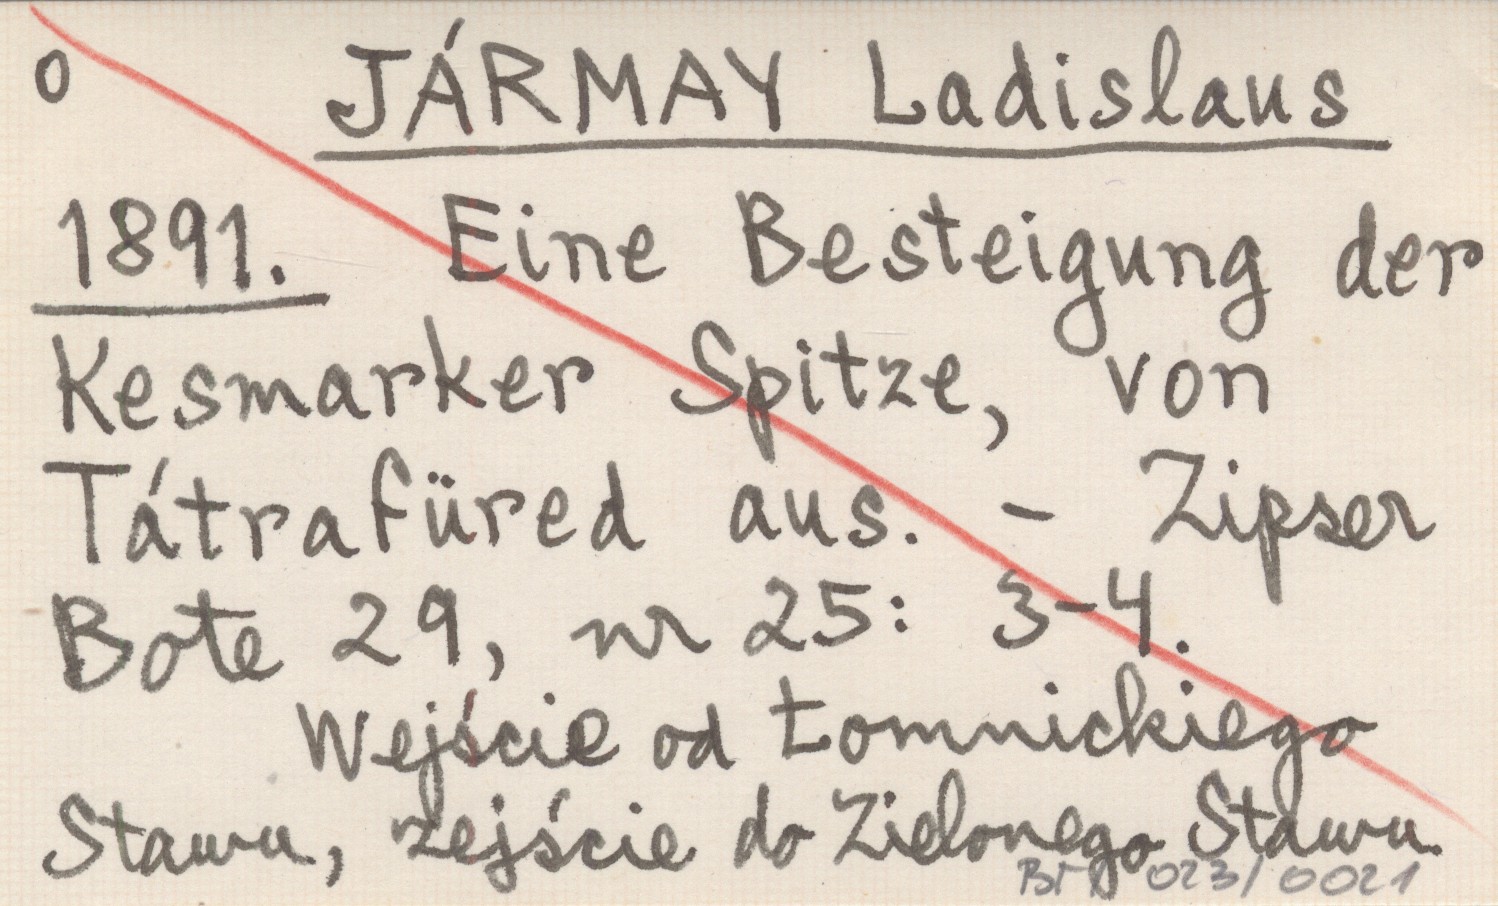 o JÁRMAY Ladislaus
1891. Eine Besteigung der
Kesmarker Spitze, von
Tátrafüred aus. – Zipser
Bote 29, nr 25: 3–4.
Wejście od Łomnickiego
Stawu, zejście do Zielonego Stawu.
023/0021